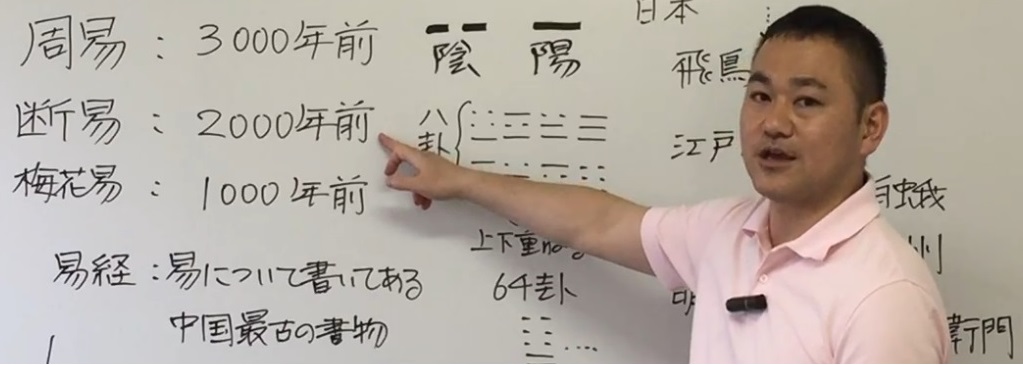 周易：3000年前
断易：2000年前
梅花易：1000年前
易経：易について書いてある
中国最古の書物
陰 陽
八卦
上下重ね
64卦
日本
飛鳥
江戸
明
白蛾
州
衛門